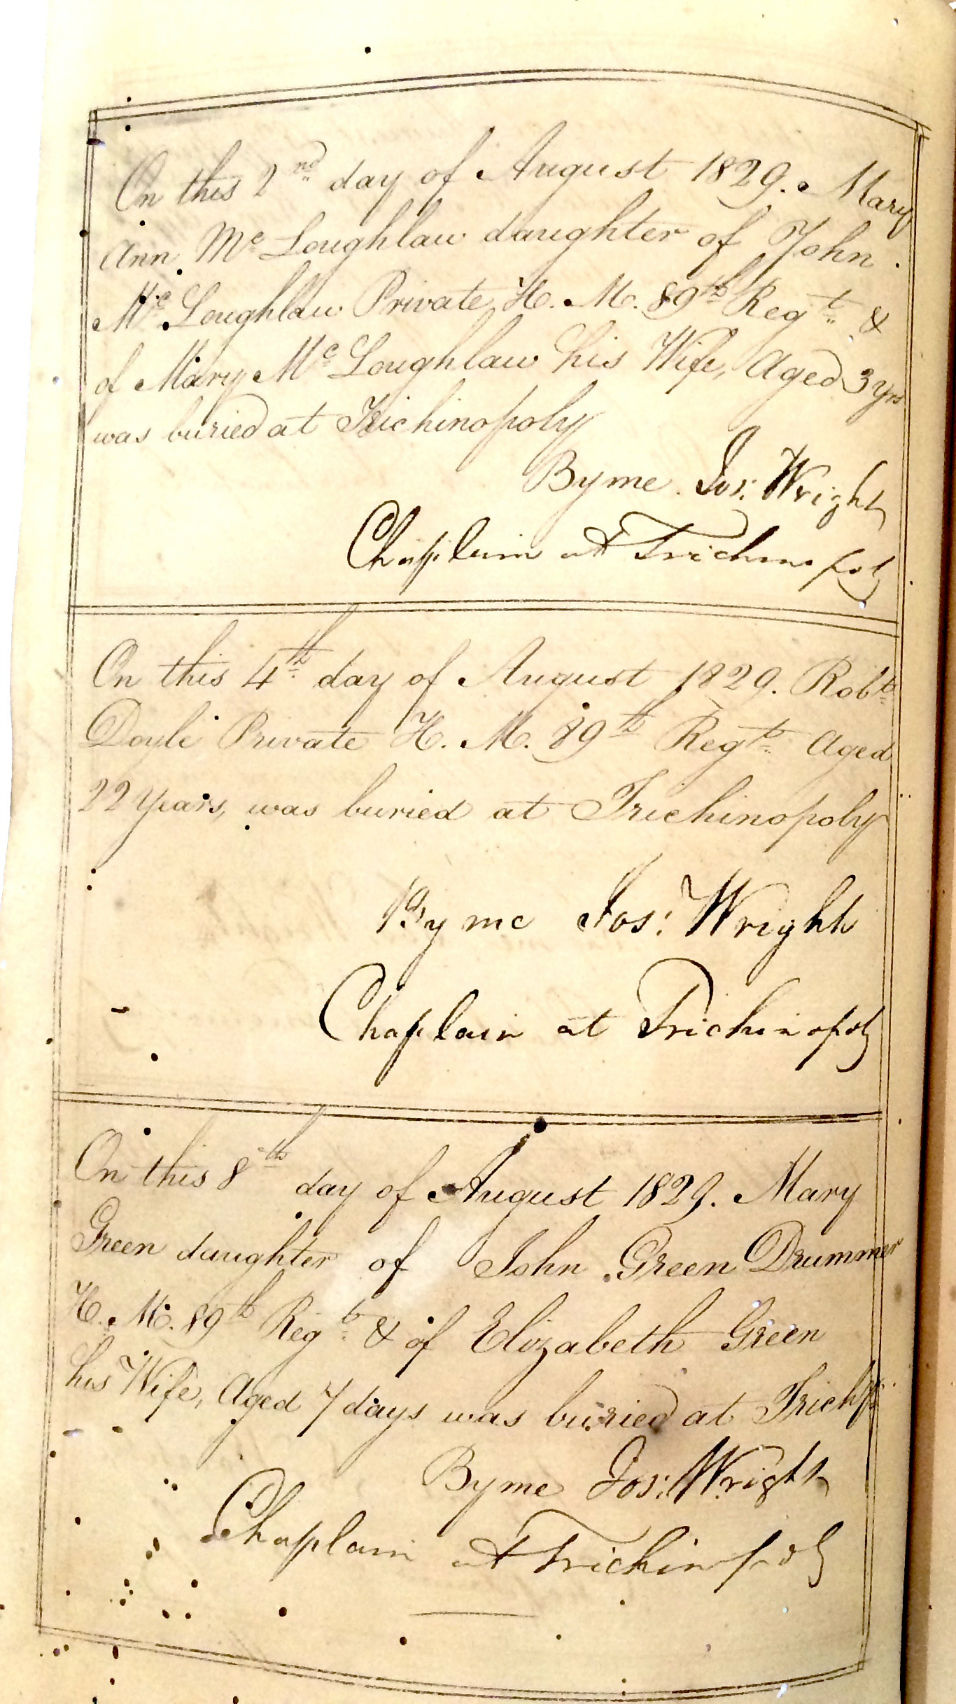 On this 2nd day of August 1829. Mary
Ann Mc Loughlaw daughter of John
Mc Loughlaw Private H. M. 89th Regt. &
of Mary Mc Loughlaw his Wife, Aged 3 yrs
was buried at Trichinopoly
By me Jos: Wright
Chaplain at Trichinopoly
On this 4th day of August 1829. Robt.
Doule Private H. M. 89th Regt. Aged
22 Years, was buried at Trichinopoly
By me Jos: Wright
Chaplain at Trichinopoly
On this 8th day of August 1829. Mary
Green daughter of John Green Drummer
H. M. 89th Regt. & of Elizabeth Green
his Wife, Aged 7 days was buried at Trichy
By me Jos: Wright
Chaplain at Trichinopoly